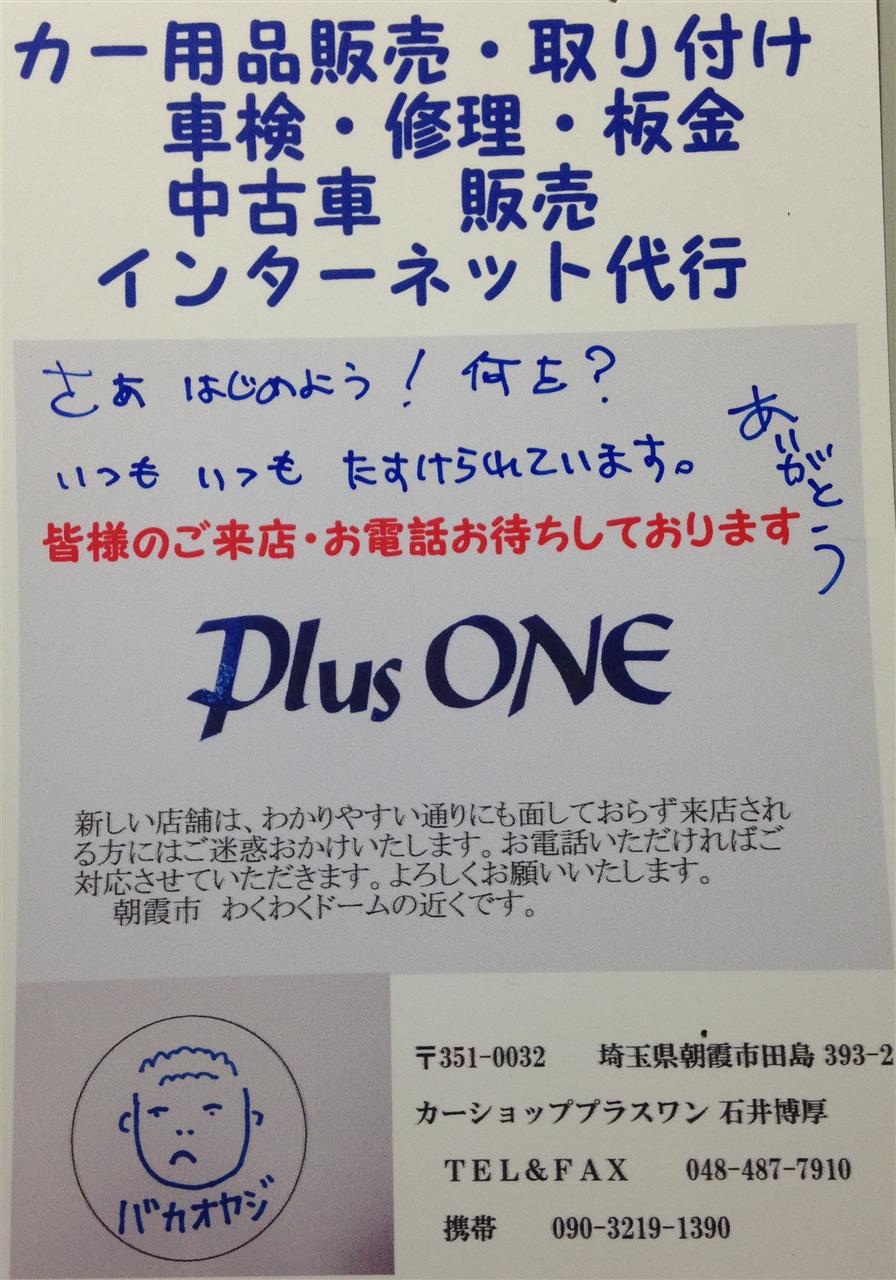 カー用品販売・取り付け
車検・修理・板金
中古車　販売
インターネット代行
さあ はじめよう！ 何を？
いつも いつも たすけられています。
ありがとう
皆様のご来店・お電話お待ちしております
Plus ONE
新しい店舗は、わかりやすい通りにも面しておらず来店され
る方にはご迷惑おかけいたします。お電話いただければご
対応させていただきます。よろしくお願いいたします。
朝霞市　わくわくドームの近くです。
バカオヤジ
〒351-0032　埼玉県朝霞市田島 393-2
カーショッププラスワン 石井博厚
ＴＥＬ＆ＦＡＸ　048-487-7910
携帯　090-3219-1390